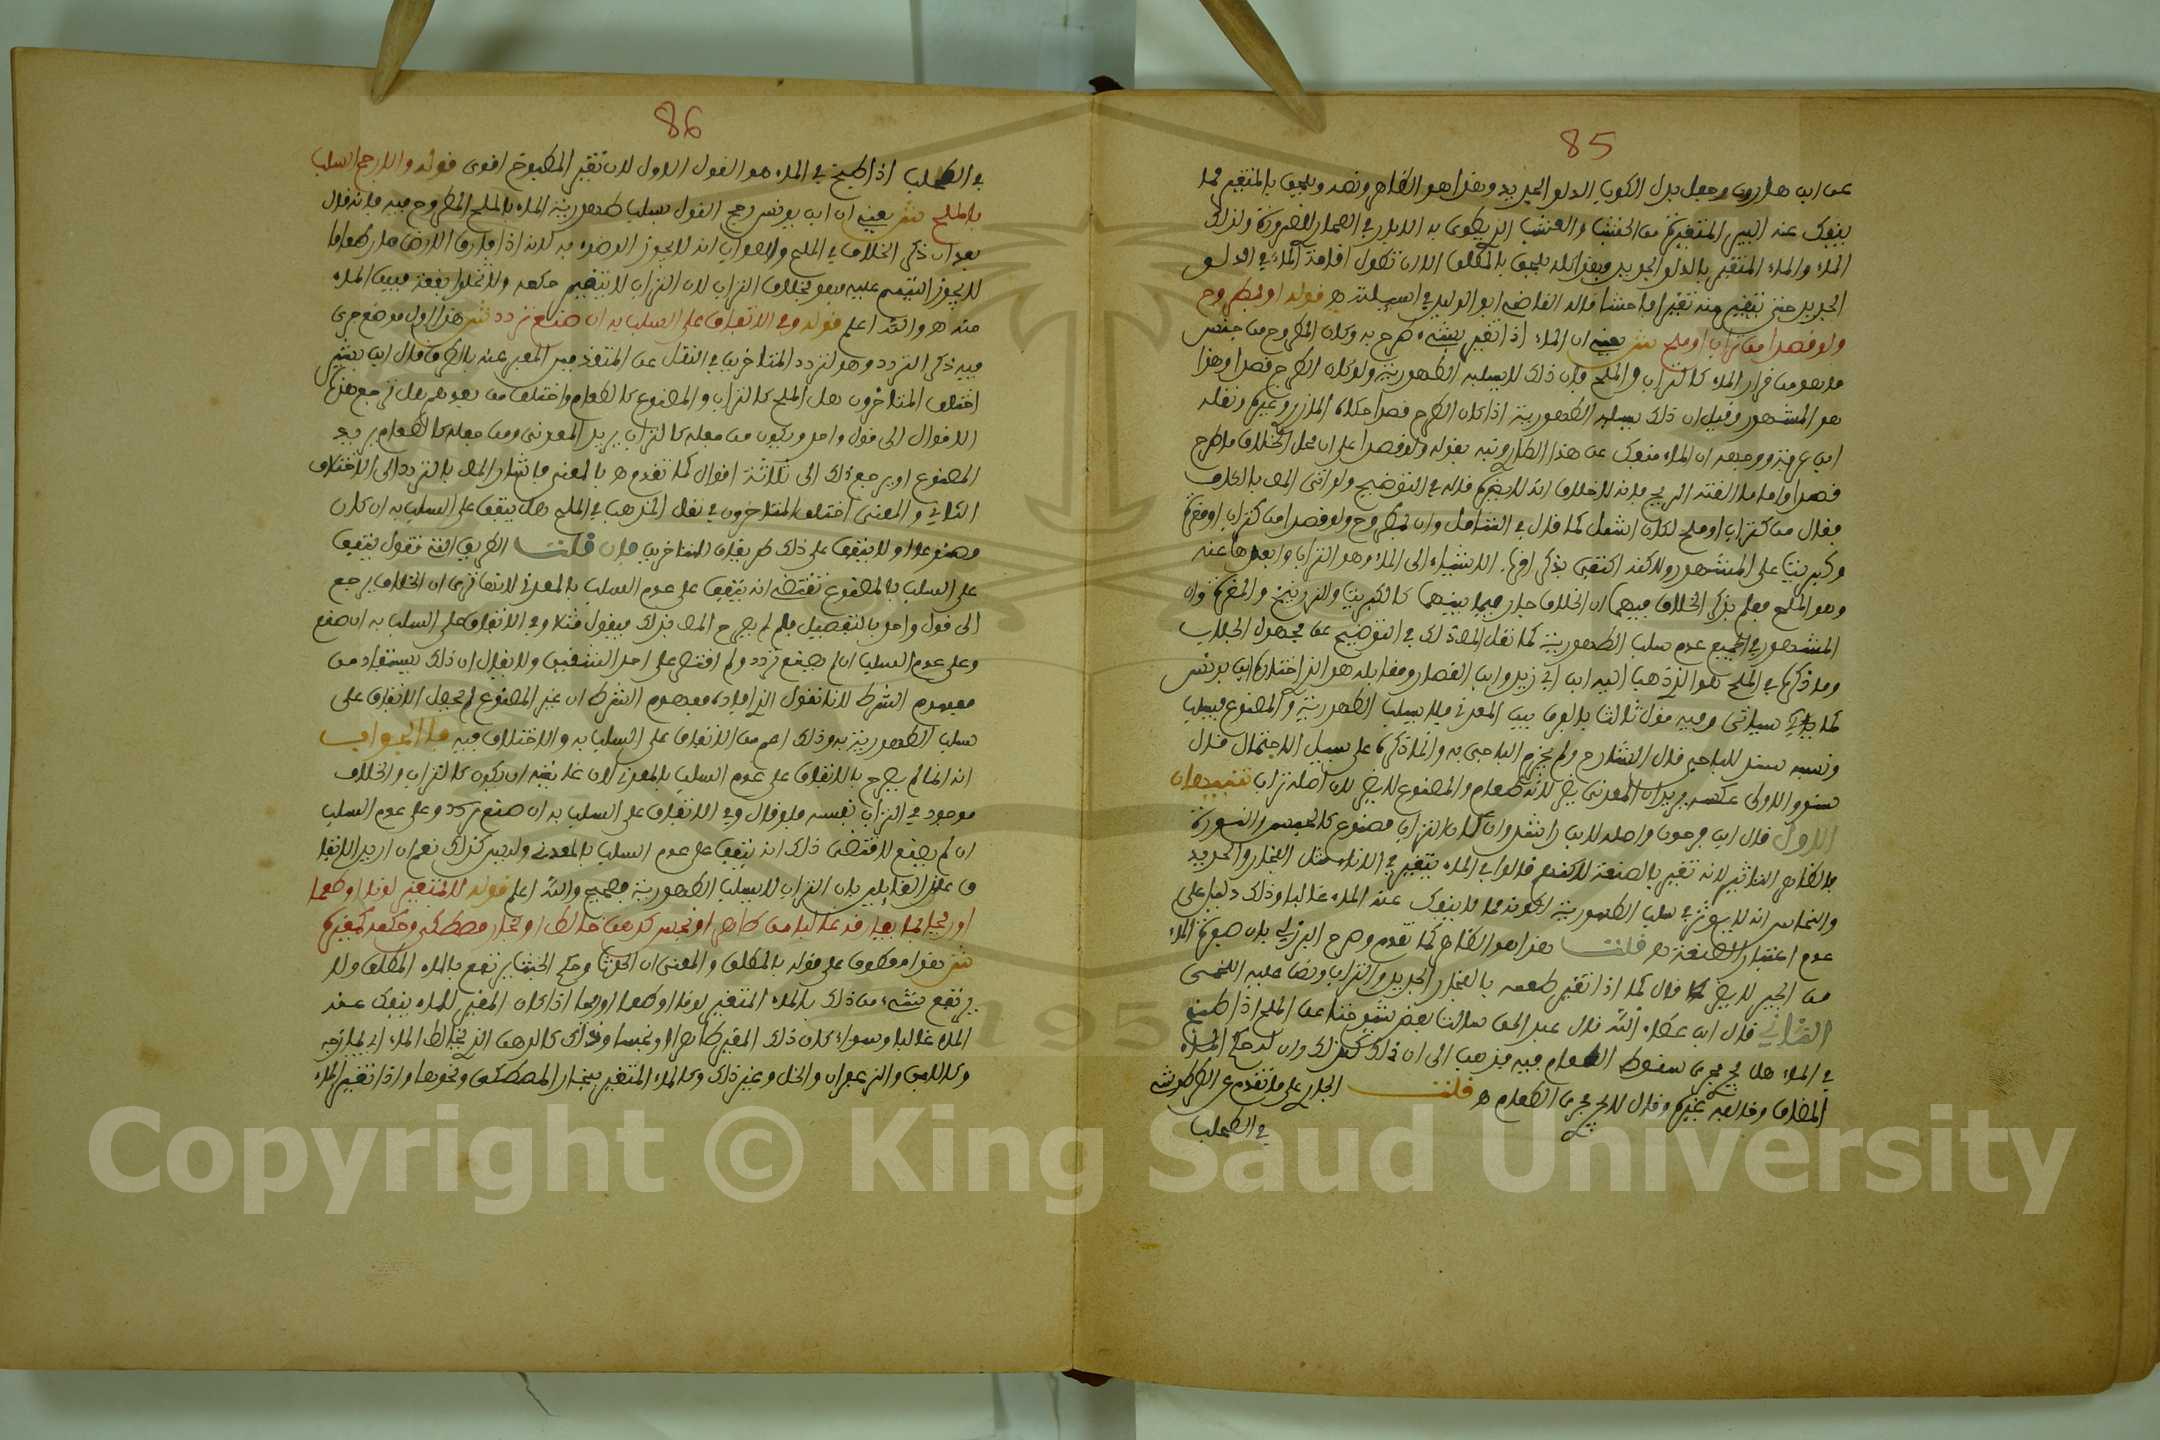 85
عن ابن هارون وجعل بدل الكوب الدلو الجديد وهذا هو الظاهر ونصه ويلحق بالمتغير مما
ينفك عنه البير المتغيرة من الخشب والعشب الذي يطوى به الابار في الصحارى للضرورة وكذلك
الماء والماء المتغير بالدلو الجديد وبهذا كله يلحق بالمطلق الا ان تطول اقامة الماء في الدلو
الجديد حتى يتغير منه تغيرا فاحشا قاله القاضي ابو الوليد في اسيلته هـ قوله او بمطروح
ولو قصدا من تراب او ملح ش يعني ان الماء اذا تغير بشيء طرح به وكان المطروح من جنس
ما هو من قرار الماء كالتراب والملح فان ذلك لا يسلبه الطهورية ولو كان الطرح قصدا وهذا
هو المشهور وقيل ان ذلك يسلبه الطهورية اذا كان الطرح قصدا حكاه المازري وغيره ونقله
ابن عرفة ووجهه ان الماء منفك عن هذا الطاري ونبه بقوله ولو قصدا على ان محل الخلاف ما طرح
قصدا واما ما القته الريح فانه لا خلاف انه لا يضر قاله في التوضيح ولو اتى المص بالكاف
فقال من كتراب او ملح لكان اشمل كما قال في الشامل وان بمطروح ولو قصدا من كتراب او مغرة
وكبريت على المشهور ولاكنه اكتفى بذكر اقرب الاشياء الى الماء وهو التراب وابعدها عنه
وهو الملح فعلم بذكر الخلاف فيهما ان الخلاف جار فيما بينهما كالكبريت والزرنيخ والمغرة وان
المشهور في الجميع عدم سلب الطهورية كما نقل المص ذلك في التوضيح عن مجهول الجلاب
وما ذكره في الملح هو الذي ذهب اليه ابن ابي زيد وابن القصار ومقابله هو الذي اختاره ابن يونس
كما سياتي وفيه قول ثالث بالفرق بين المعدني فلا يسلب الطهورية والمصنوع فيسلب
ونسبه سند للباجي قال الشارح ولم يجزم الباجي به وانما ذكره على سبيل الاحتمال قال
سند والاولى عكسه يريد ان المعدني يضر لانه طعام والمصنوع لا يضر لان اصله تراب تنبيهان
الاول قال ابن فرحون واصله لابن راشد وان كان التراب مصنوع كالجبس والنورة
فالظاهر التاثير لانه تغير بالصنعة لاكنهم قالوا في الماء يتغير في الاناء مثل الفخار والحديد
والنحاس انه لا يؤثر في سلب الطهورية لكونه مما لا ينفك عنه الماء غالبا وذلك دليل على
عدم اعتبار الصنعة هـ قلت هذا هو الظاهر كما تقدم وصرح البرزلي بان صوغ الماء
من الجير لا يضر قال كما اذا تغير طعمه بالفخار الجديد والتراب ونص عليه اللخمي
الثاني قال ابن عطاء الله قال عبد الحق سالت بعض شيوخنا عن الملح اذا طبخ
في الماء هل يجري مجرى سقوط الطعام فيه فذهب الى ان ذلك كذلك وان له حكم الماء
المضاف وخالفه غيره وقال لا يجري مجرى الطعام هـ قلت الجاري على ما تقدم عن الطرطوشي
في الطحلب
86
في الطحلب اذا طبخ في الماء هو القول الاول لان تغير المطبوخ اقوى قوله والارجح السلب
بالملح ش يعني ان ابن يونس رجح القول بسلب طهورية الماء بالملح المطروح فيه فانه قال
بعد ان ذكر الخلاف في الملح والصواب انه لا يجوز الوضوء به لانه اذا فارق الارض صار طعاما
لا يجوز التيمم عليه فهو بخلاف التراب لان التراب لا يتغير حكمه ولا تخلو بقعة فيها الماء
منه هـ والله اعلم قوله وفي الاتفاق على السلب به ان صنع تردد ش هذا اول موضع جرى
فيه ذكر التردد وهو لتردد المتاخرين في النقل عن المتقدمين المعبر عنه بالطرق قال ابن بشير
اختلف المتاخرون هل الملح كالتراب والمصنوع كالطعام واختلف من بعدهم هل ترجع هذه
الاقوال الى قول واحد ويكون من جعله كالتراب يريد المعدني ومن جعله كالطعام يريد
المصنوع او يرجع ذلك الى ثلاثة اقوال كما تقدم هـ بالمعنى فاشار المص بالتردد الى الاختلاف
الثاني والمعنى اختلف المتاخرون في نقل المذهب في الملح هل يتفق على السلب به ان كان
مصنوعا او لا يتفق على ذلك طريقان للمتاخرين فان قلت الطريق التي تقول يتفق
على السلب بالمصنوع تقتضي انه يتفق على عدم السلب بالمعدني لانها ترى ان الخلاف يرجع
الى قول واحد بالتفصيل فلم لم يصرح المص بذلك فيقول مثلا وفي الاتفاق على السلب به ان صنع
وعلى عدم السلب ان لم يصنع تردد ولم اقتصر على احد الشقين ولا يقال ان ذلك يستفاد من
مفهوم الشرط لانا نقول الذي افاده مفهوم الشرط ان غير المصنوع لم يحصل الاتفاق على
سلب الطهورية به وذلك اعم من الاتفاق على السلب به والاختلاف فيه فالجواب
انه انما لم يصرح بالاتفاق على عدم السلب بالمعدني لان غايته ان يكون كالتراب والخلاف
موجود في التراب نفسه فلو قال وفي الاتفاق على السلب به ان صنع تردد وعلى عدم السلب
ان لم يصنع لاقتضى ذلك انه يتفق على عدم السلب بالمعدني وليس كذلك نعم ان اريد الاتفا
ق عند القايلين بان التراب لا يسلب الطهورية فصحيح والله اعلم قوله لا بمتغير لونا او طعما
او ريحا بما يفارقه غالبا من طاهر او نجس كدهن خالط او بخار مصطكى وحكمه كمغيره
ش هذا معطوف على قوله بالمطلق والمعنى ان الحدث وحكم الخبث يرتفع بالماء المطلق ولا
يرتفع بشيء من ذلك بالماء المتغير لونا او طعما او ريحا اذا كان المغير للماء ينفك عنه
الماء غالبا وسواء كان ذلك المغير طاهرا او نجسا وذلك كالدهن الذي يخالط الماء اي يمازجه
وكاللبن والزعفران والخل وغير ذلك وكالماء المتغير ببخار المصطكى ونحوها واذا تغير الماء
Copyright © King Saud University